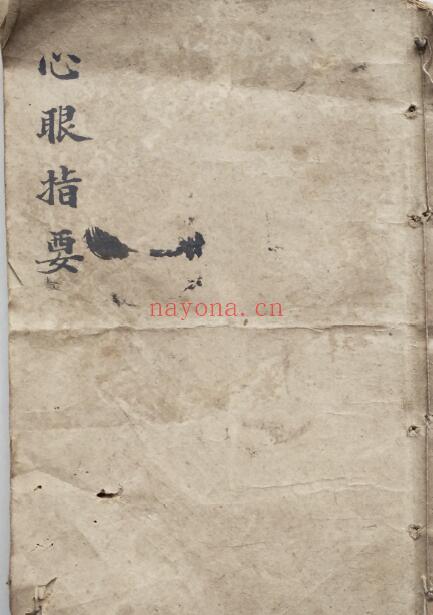 心眼指要
nayona.cn